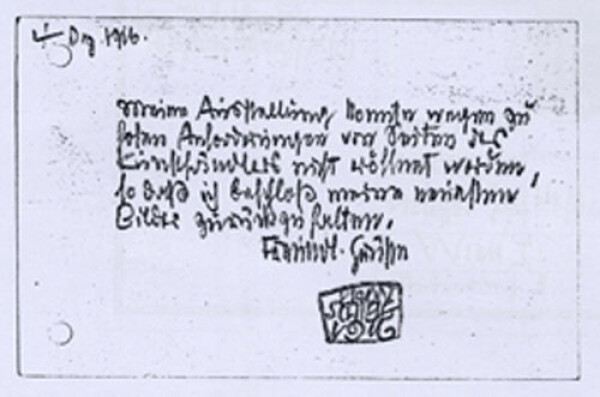 Dez. 1916.
meine Ausstellung konnte wegen zu
hohen Anforderungen von Seiten des
Kunsthändlers nicht eröffnet werden,
so daß ich beschloß meine neuesten
Bilder zurückzuhalten.
Freundl. Grüße
1916